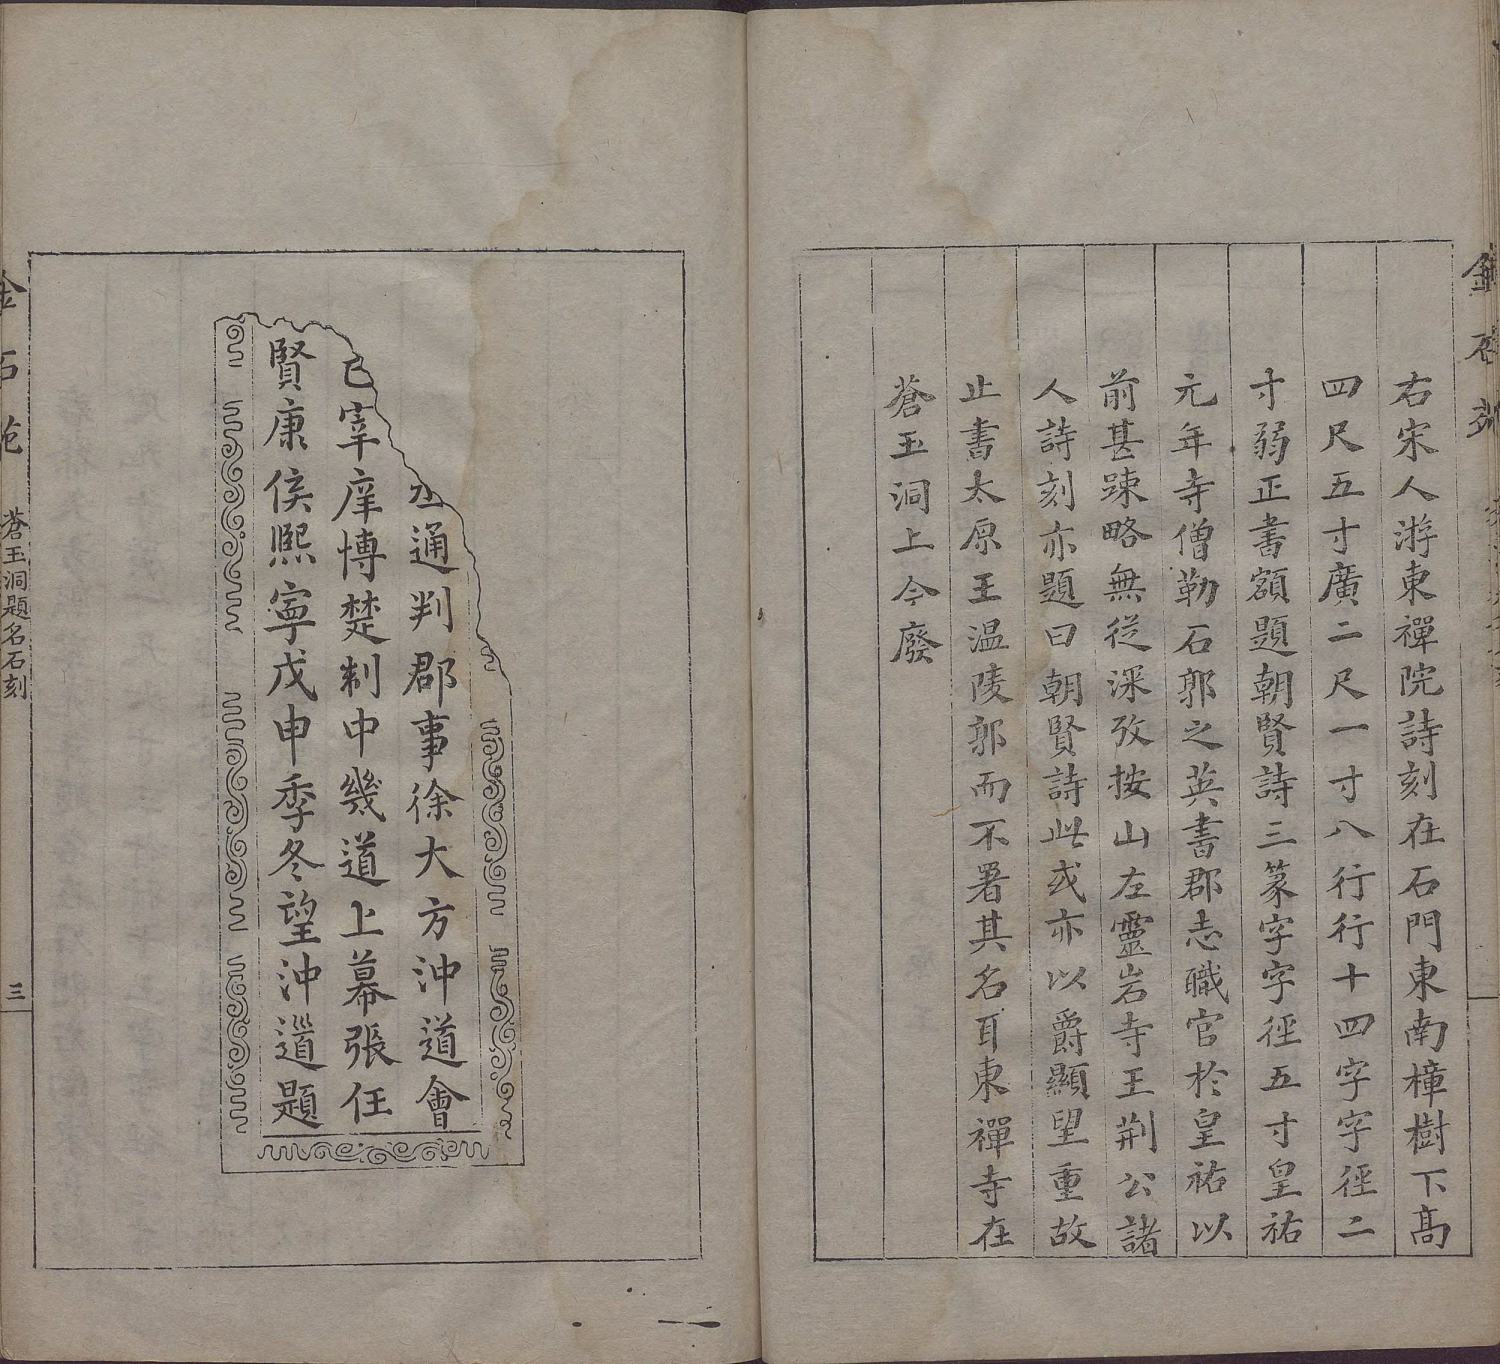 金石苑
右宋人游東禪院詩刻在石門東南樟樹下高
四尺五寸廣二尺一寸八行行十四字字徑二
寸弱正書額題朝賢詩三篆字字徑五寸皇祐
元年寺僧勒石郭之英書郡志職官於皇祐以
前甚踈略無從深攷按山左靈岩寺王荆公諸
人詩刻亦題曰朝賢詩此或亦以爵顯望重故
止書太原王温陵郭而不署其名耳東禪寺在
蒼玉洞上今廢
通判郡事徐大方沖道會
巳宰庠博楚制中幾道上幕張任
賢康侯熙寧戊申季冬望沖道題
金石苑
蒼玉洞題名石刻
三